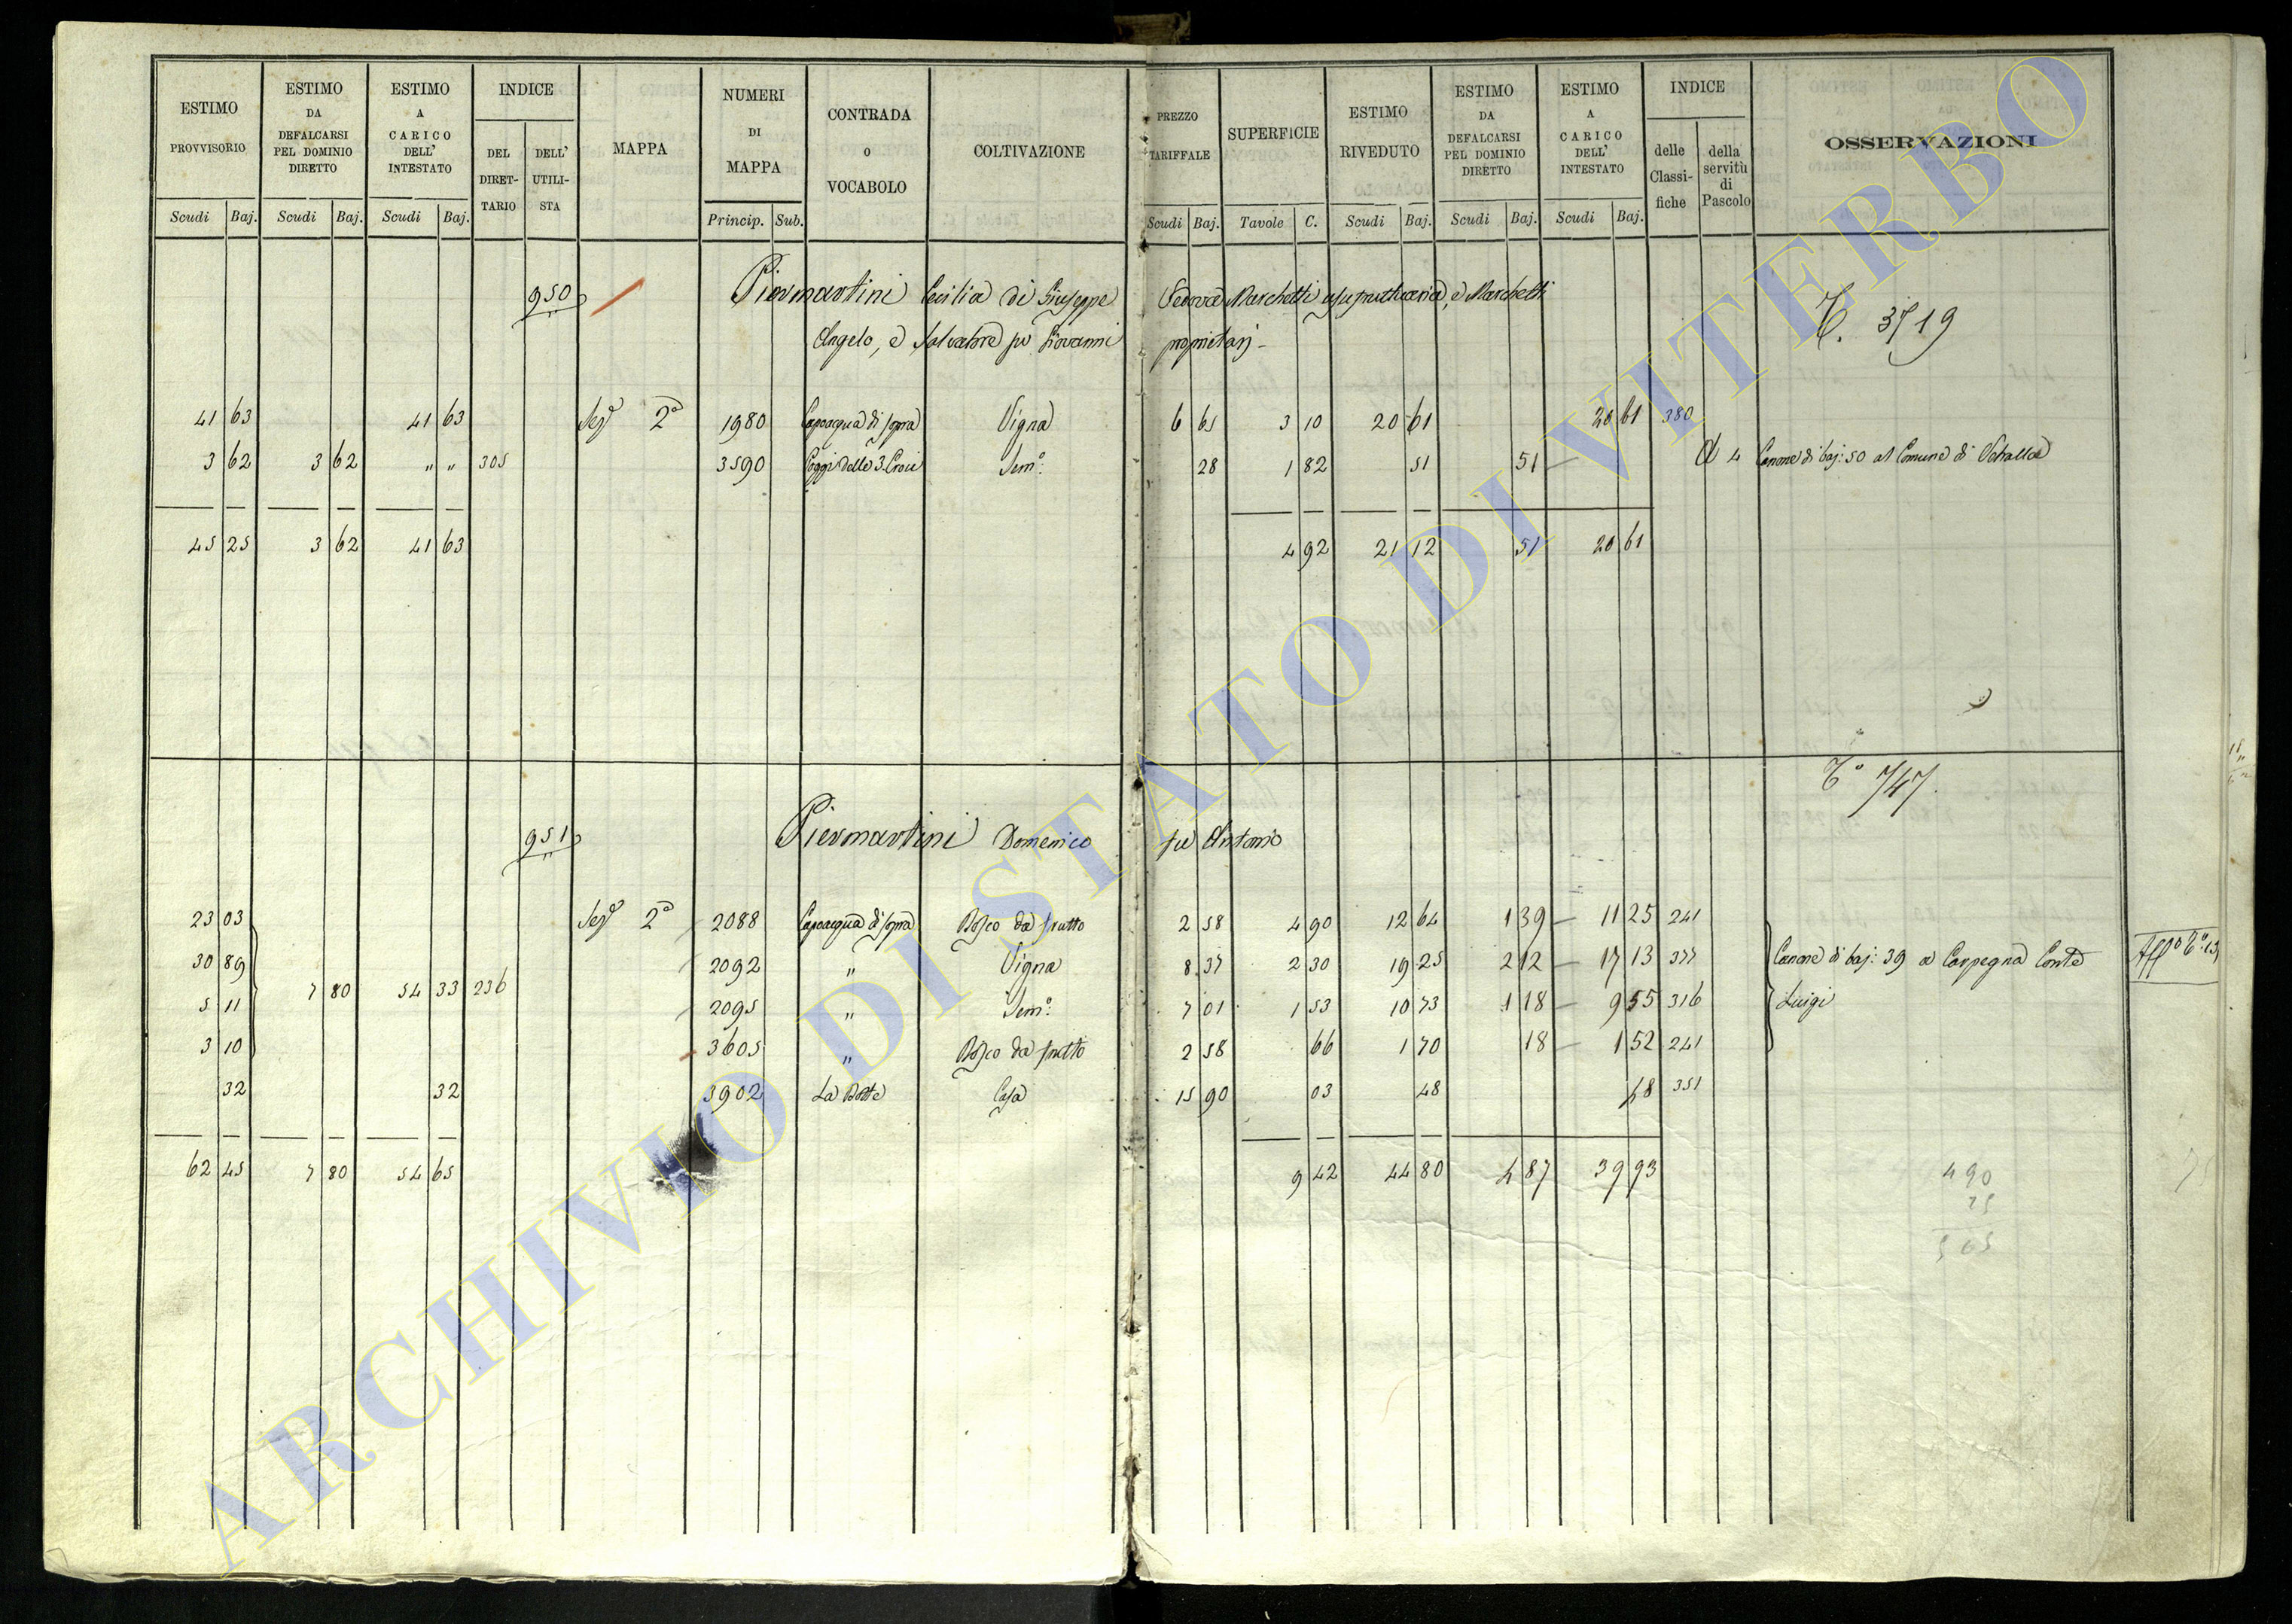 ESTIMO PROVVISORIO Scudi Baj.
ESTIMO DA DEFALCARSI PEL DOMINIO DIRETTO Scudi Baj.
ESTIMO A CARICO DELL' INTESTATO Scudi Baj.
INDICE DEL DIRET-TARIO DELL' UTILI-STA
MAPPA
NUMERI DI MAPPA Princip. Sub.
CONTRADA O VOCABOLO
COLTIVAZIONE
PREZZO TARIFFALE Scudi Baj.
SUPERFICIE Tavole C.
ESTIMO RIVEDUTO Scudi Baj.
ESTIMO DA DEFALCARSI PEL DOMINIO DIRETTO Scudi Baj.
ESTIMO A CARICO DELL' INTESTATO Scudi Baj.
INDICE delle Classi-fiche della servitù di Pascolo
OSSERVAZIONI
950 Piermartini Cecilia di Giuseppe Vedova Marchetti usufruttuaria, e Marchetti
Angelo, e Salvatore fu Giovanni proprietarj -
T. 3719
41 63 41 63 Seze 2a 1980 Capoacqua di sopra Vigna 6 65 3 10 20 61 20 61 380
3 62 3 62 " " 305 3590 Poggi delle 3. Croci Semo: 28 1 82 51 51 — A 4 Canone di baj: 50 al Comune di Vetralla
45 25 3 62 41 63 4 92 21 12 51 20 61
To 747.
951 Piermartini Domenico fu Antonio
23 03 Seze 2a 2088 Capoacqua di sopra Bosco da frutto 2 58 4 90 12 64 1 39 — 11 25 241
30 89 2092 " Vigna 8 37 2 30 19 25 2 12 — 17 13 377 Canone di baj: 39 a Carpegna Conte
7 80 54 33 236
5 11 2095 " Semo: 7 01 1 53 10 73 1 18 — 9 55 316 Luigi
3 10 3605 " Bosco da frutto 2 58 66 1 70 18 — 1 52 241
32 32 3902 La Botte Casa 15 90 03 48 48 351
62 45 7 80 54 65 9 42 44 80 4 87 39 93
490
75
565
ARCHIVIO DI STATO DI VITERBO